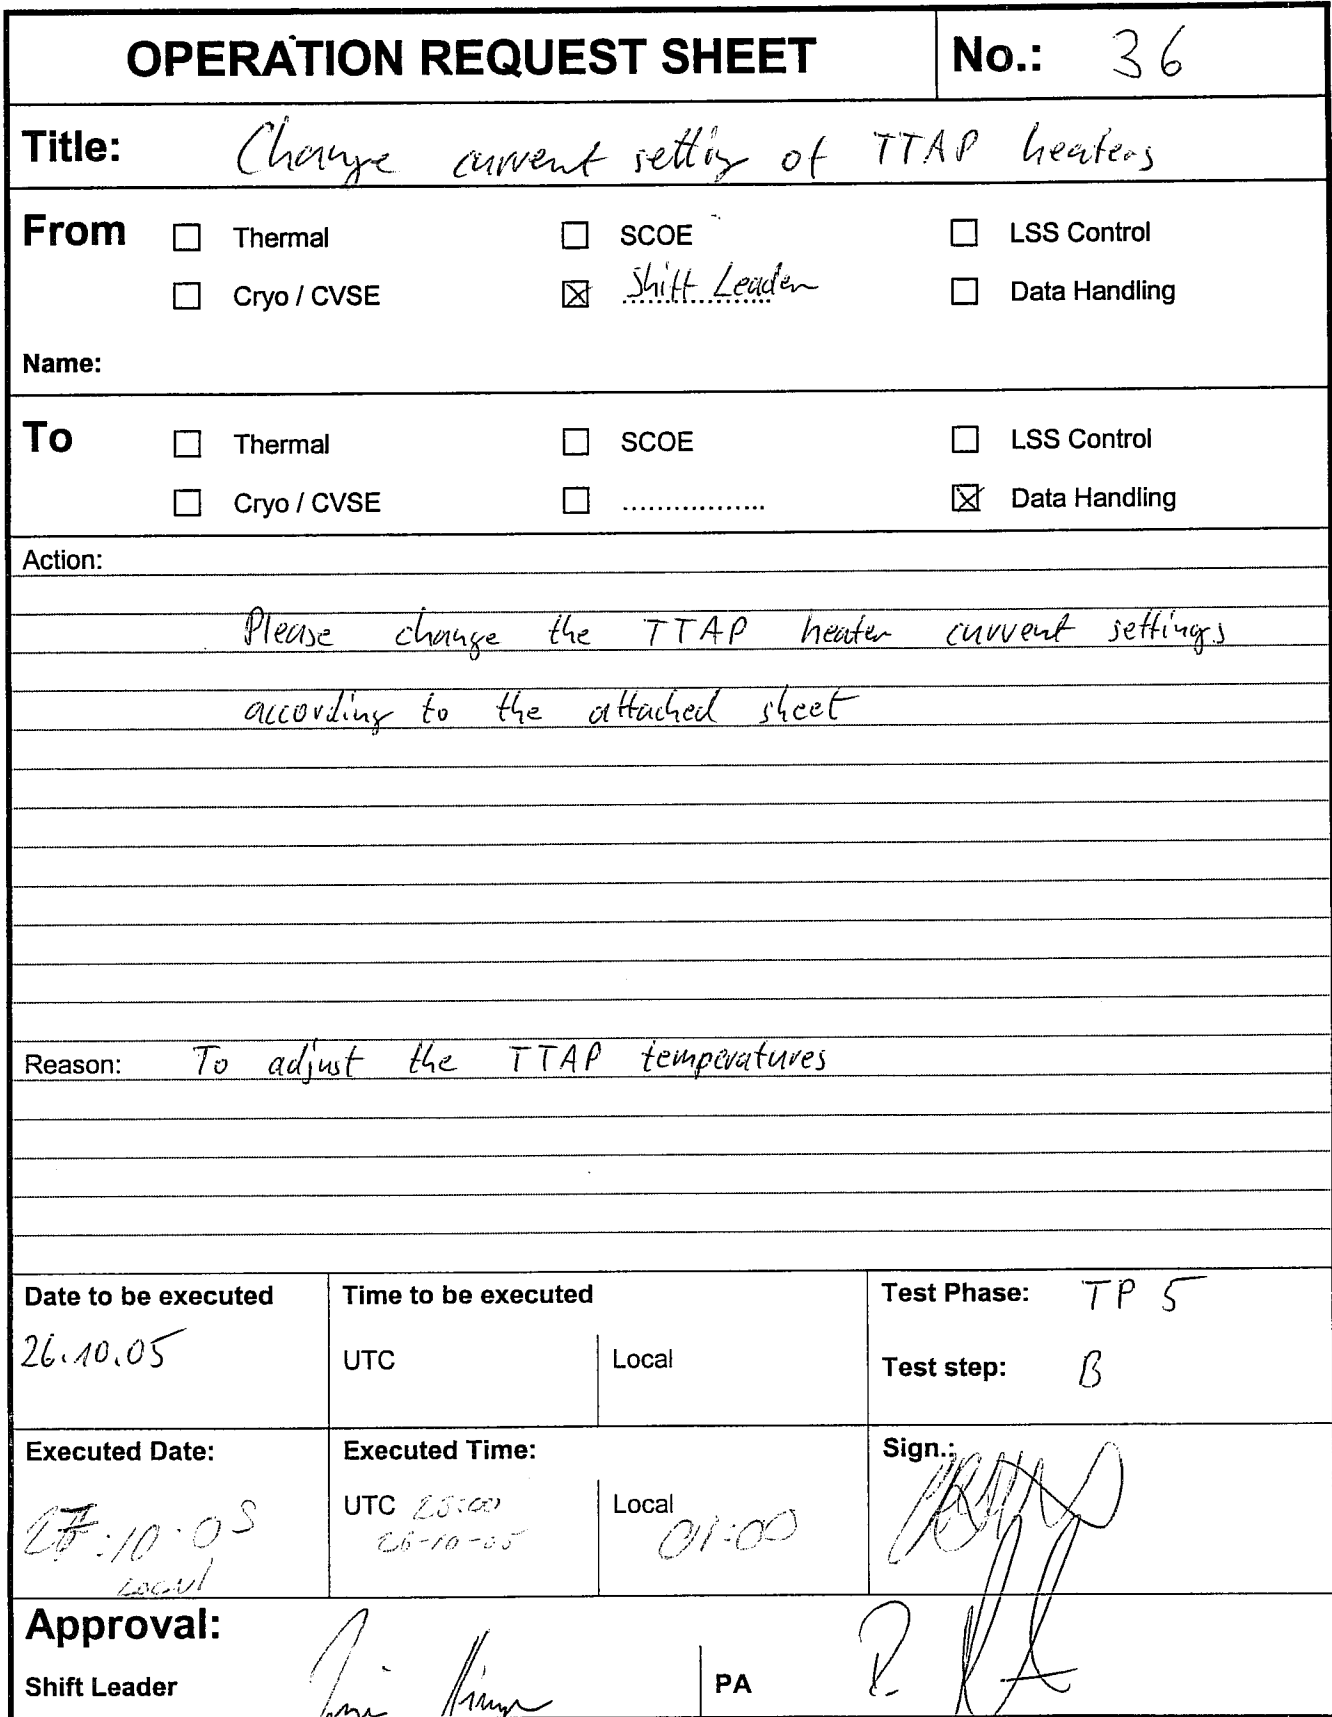 OPERATION REQUEST SHEET
No.: 36
Title: Change current setting of TTAP heaters
From ☐ Thermal ☐ SCOE ☐ LSS Control
☐ Cryo / CVSE ☒ Shift Leader ☐ Data Handling
Name:
To ☐ Thermal ☐ SCOE ☐ LSS Control
☐ Cryo / CVSE ☐ .................. ☒ Data Handling
Action:
Please change the TTAP heater current settings
according to the attached sheet
Reason: To adjust the TTAP temperatures
Date to be executed Time to be executed Test Phase: TP 5
26.10.05 UTC Local Test step: B
Executed Date: Executed Time: Sign.:
27.10.05 UTC 23:00 Local 01:00
Local 26-10-05
Approval:
Shift Leader PA